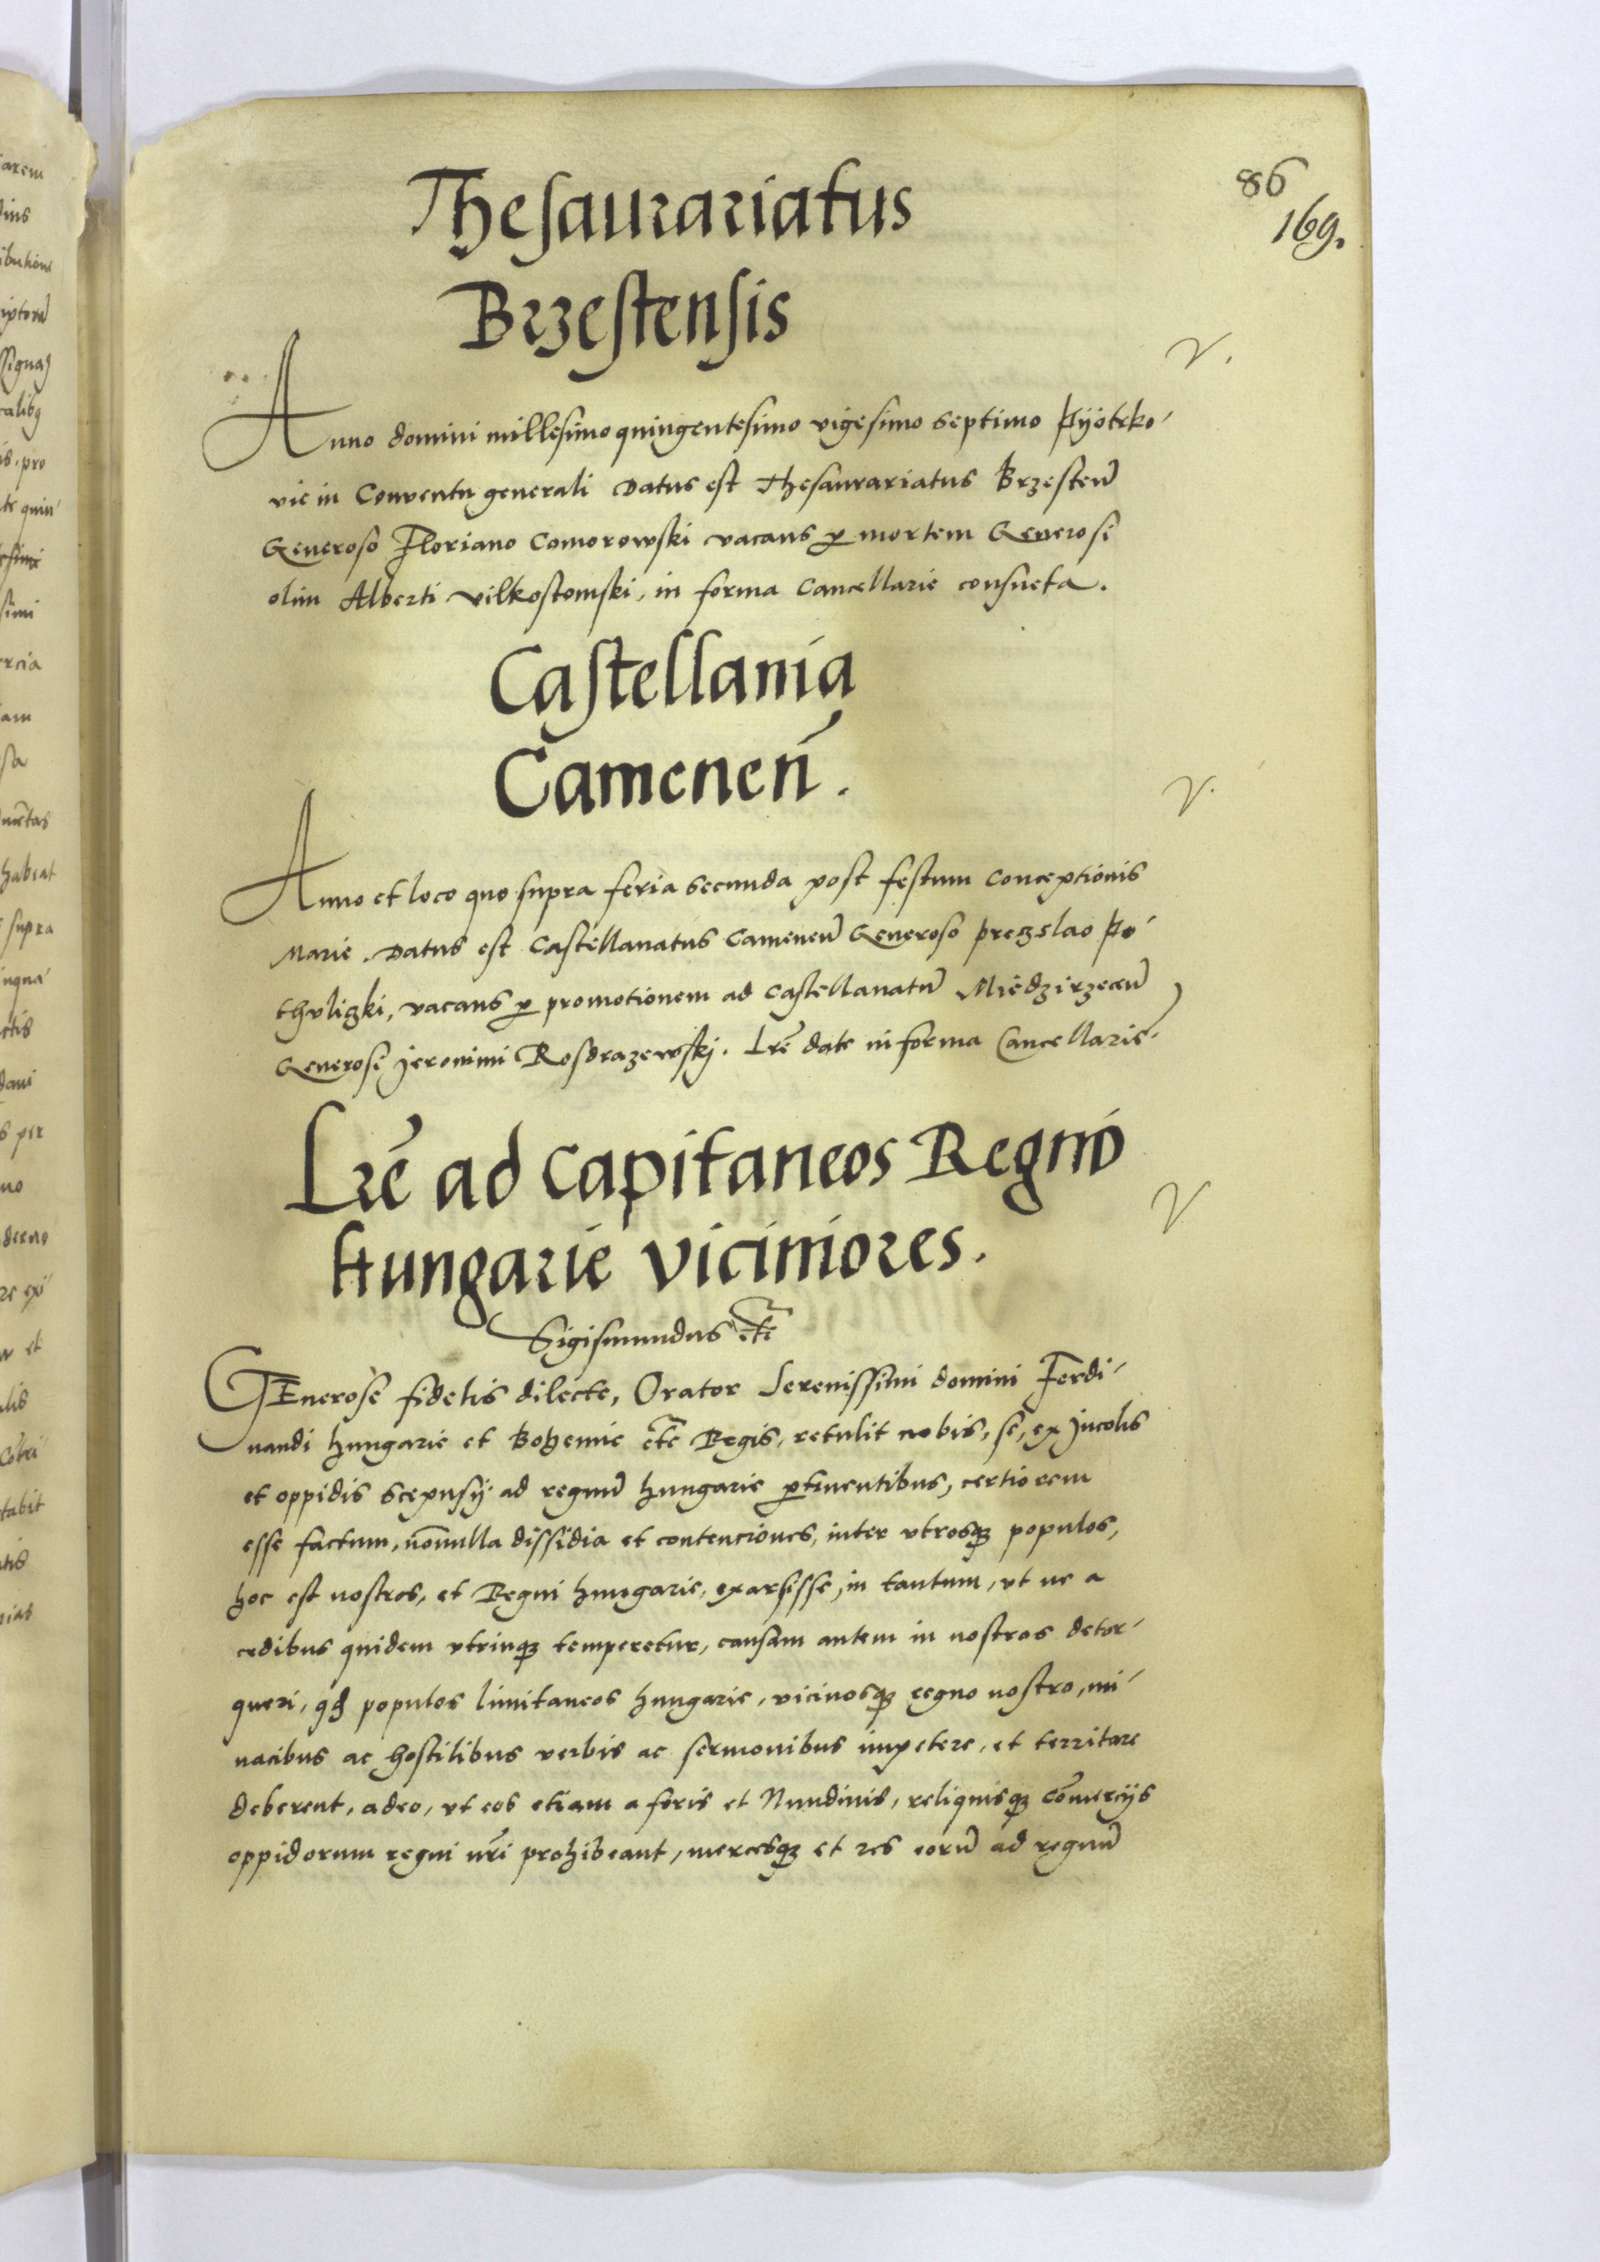 86
169.
Thesaurariatus
Brzestensis
V.
Anno domini millesimo quingentesimo vigesimo septimo Pyotrko-
vie in Conventu generali Datus est Thesaurariatus Brzesteñ
Generoso Floriano Comorowski vacans ꝑ mortem Generosi
olim Alberti vilkostowski, in forma Cancellarie consueta.
Castellania
Cameneñ.
V.
Anno et loco quo supra feria secunda post festum Conceptionis
Marie. Datus est Castellanatus Cameneñ Generoso Preczslao Po-
thuliczki, vacans ꝑ promotionem ad Castellanatũ Miedzirzeceñ
Generosi Jeronimi Rosdrazewskj. Lr̃e date in forma Cancellarie.
Lr̃e ad Capitaneos Regno
Hungarie viciniores.
V
Sigismundus etc̃
GEnerose fidelis dilecte, Orator Serenissimi domini Ferdi-
nandi Hungarie et Bohemie etc̃ Regis, retulit nobis, se, ex Incolis
et oppidis Scepusij ad regnũ Hungarie ꝑtinentibus, certiorem
esse factum, nõnulla dissidia et contenciones, inter vtrosqꝫ populos,
hoc est nostros, et Regni Hungarie, exarsisse, in tantum, vt ne a
cedibus quidem vtrinqꝫ temperetur, causam autem in nostros detor-
queri, qđ populos limitaneos Hungarie, vicinosqꝫ regno nostro, mi-
nacibus ac hostilibus verbis ac sermonibus impetere, et territare
deberent, adeo, vt eos etiam a foris et Nundinis, reliquisqꝫ com̃ercijs
oppidorum regni nr̃i prohibeant, mercesqꝫ et res eorũ ad regnũ